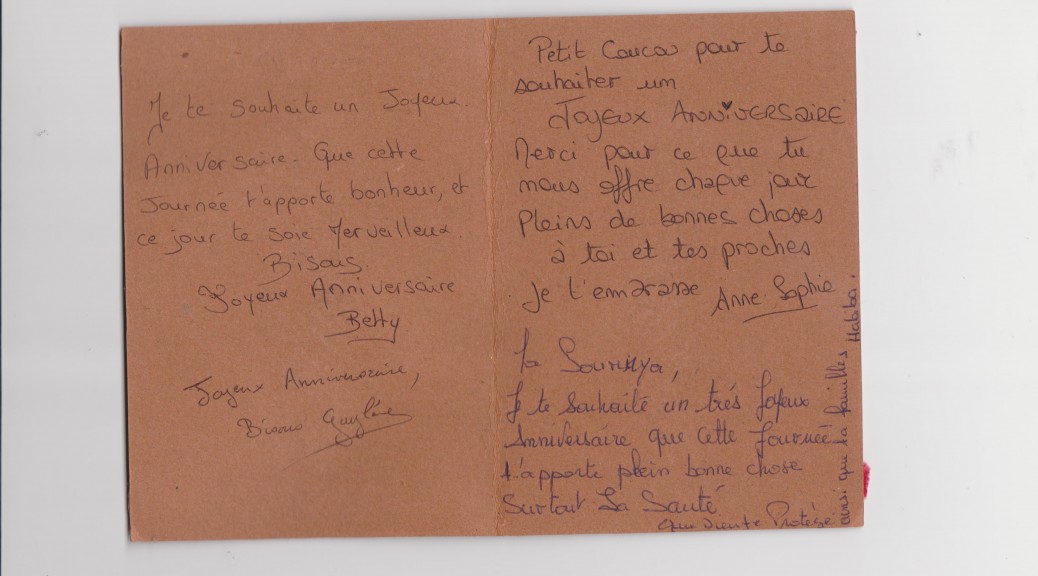 Je te souhaite un Joyeux
Anniversaire. Que cette
Journée t'apporte bonheur, et
ce jour te soie Merveilleux.
Bisous.
Joyeux Anniversaire
Betty
Joyeux Anniversaire,
Bisous
Petit Coucou pour te
souhaiter um
JOYEUX ANNIVERSAIRE
Merci pour ce que tu
nous offre chaque jour
Pleins de bonnes choses
à toi et tes proches
Je t'embrasse Anne-Sophie
La
Je te Souhaité un trés Joyeux
Anniversaire que Cette Journée
t'apporte plein bonne chose
Surtout La Santé
que Protège
ainsi que ta familles
Habiba.